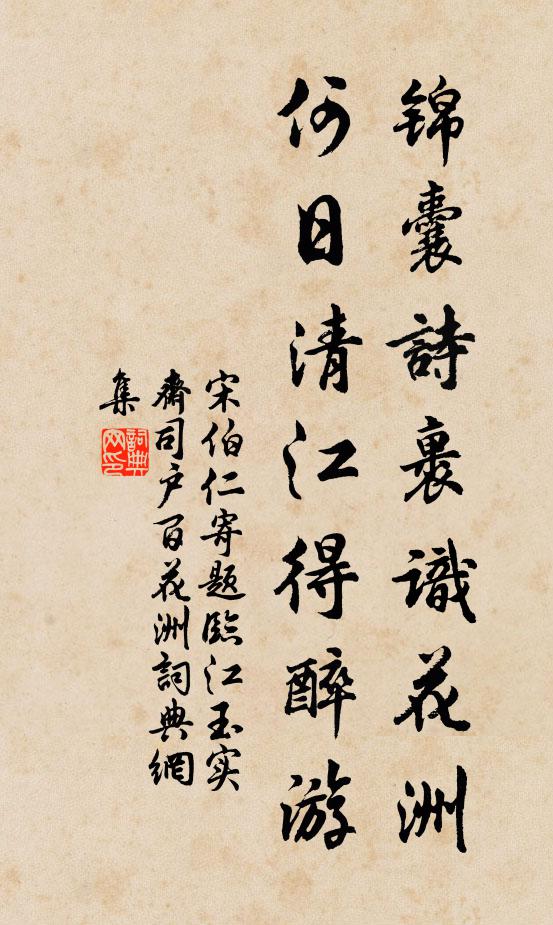 锦囊詩裏識花洲
何日清江得醉游
宋伯仁寄题臨江玉实
齋司户百花洲詞典網
集
詞典
网印